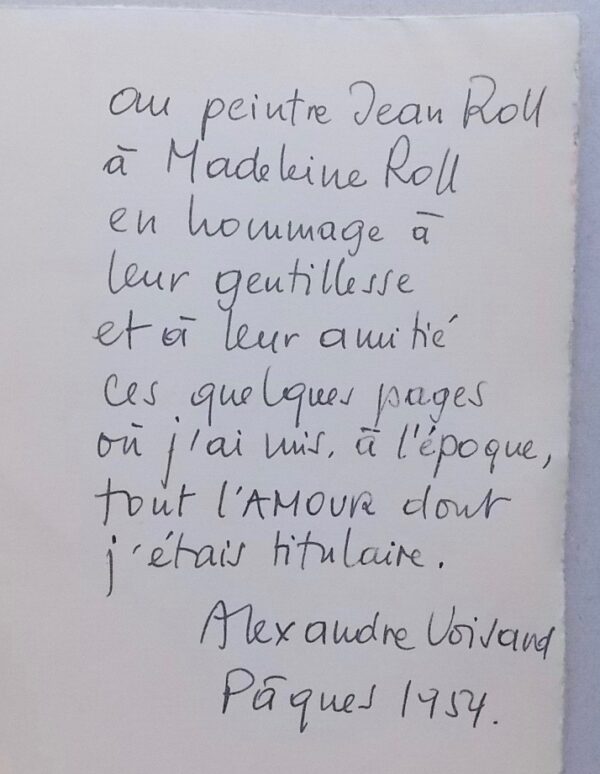 au peintre Jean Roll
à Madeleine Roll
en hommage à
leur gentillesse
et à leur amitié
ces quelques pages
où j'ai mis, à l'époque,
tout l'AMOUR dont
j'étais titulaire.
Alexandre Voisard
Pâques 1954.